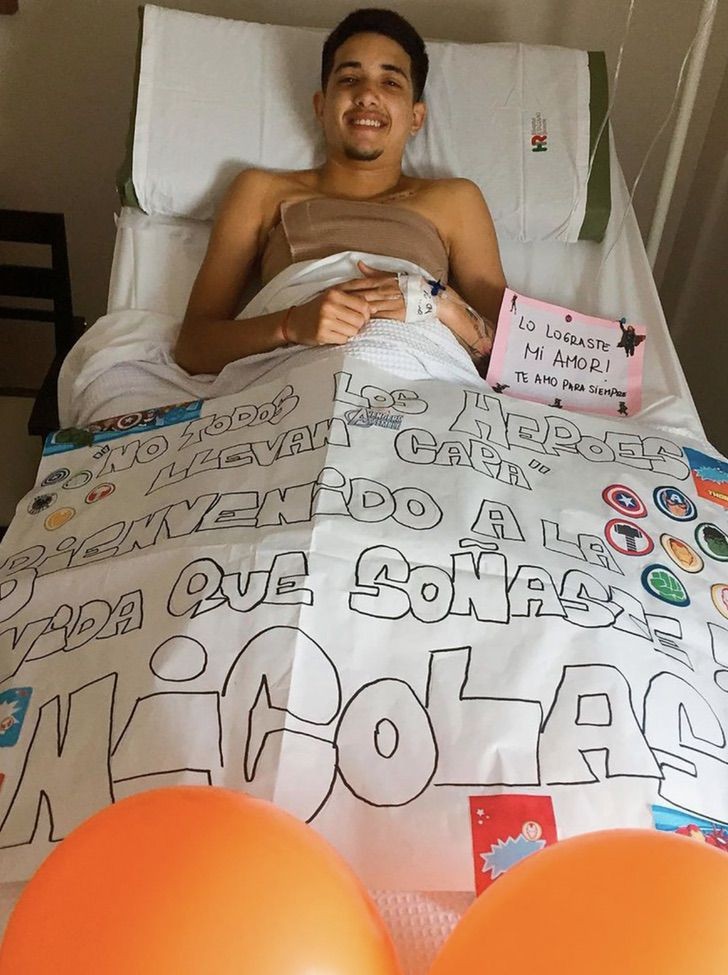 HR
LO LOGRASTE
MI AMOR!
TE AMO PARA SIEMPRE
"NO TODOS LOS HEROES
LLEVAN CAPA"
AVENGERS
BIENVENIDO A LA
VIDA QUE SOÑASTE
NICOLAS